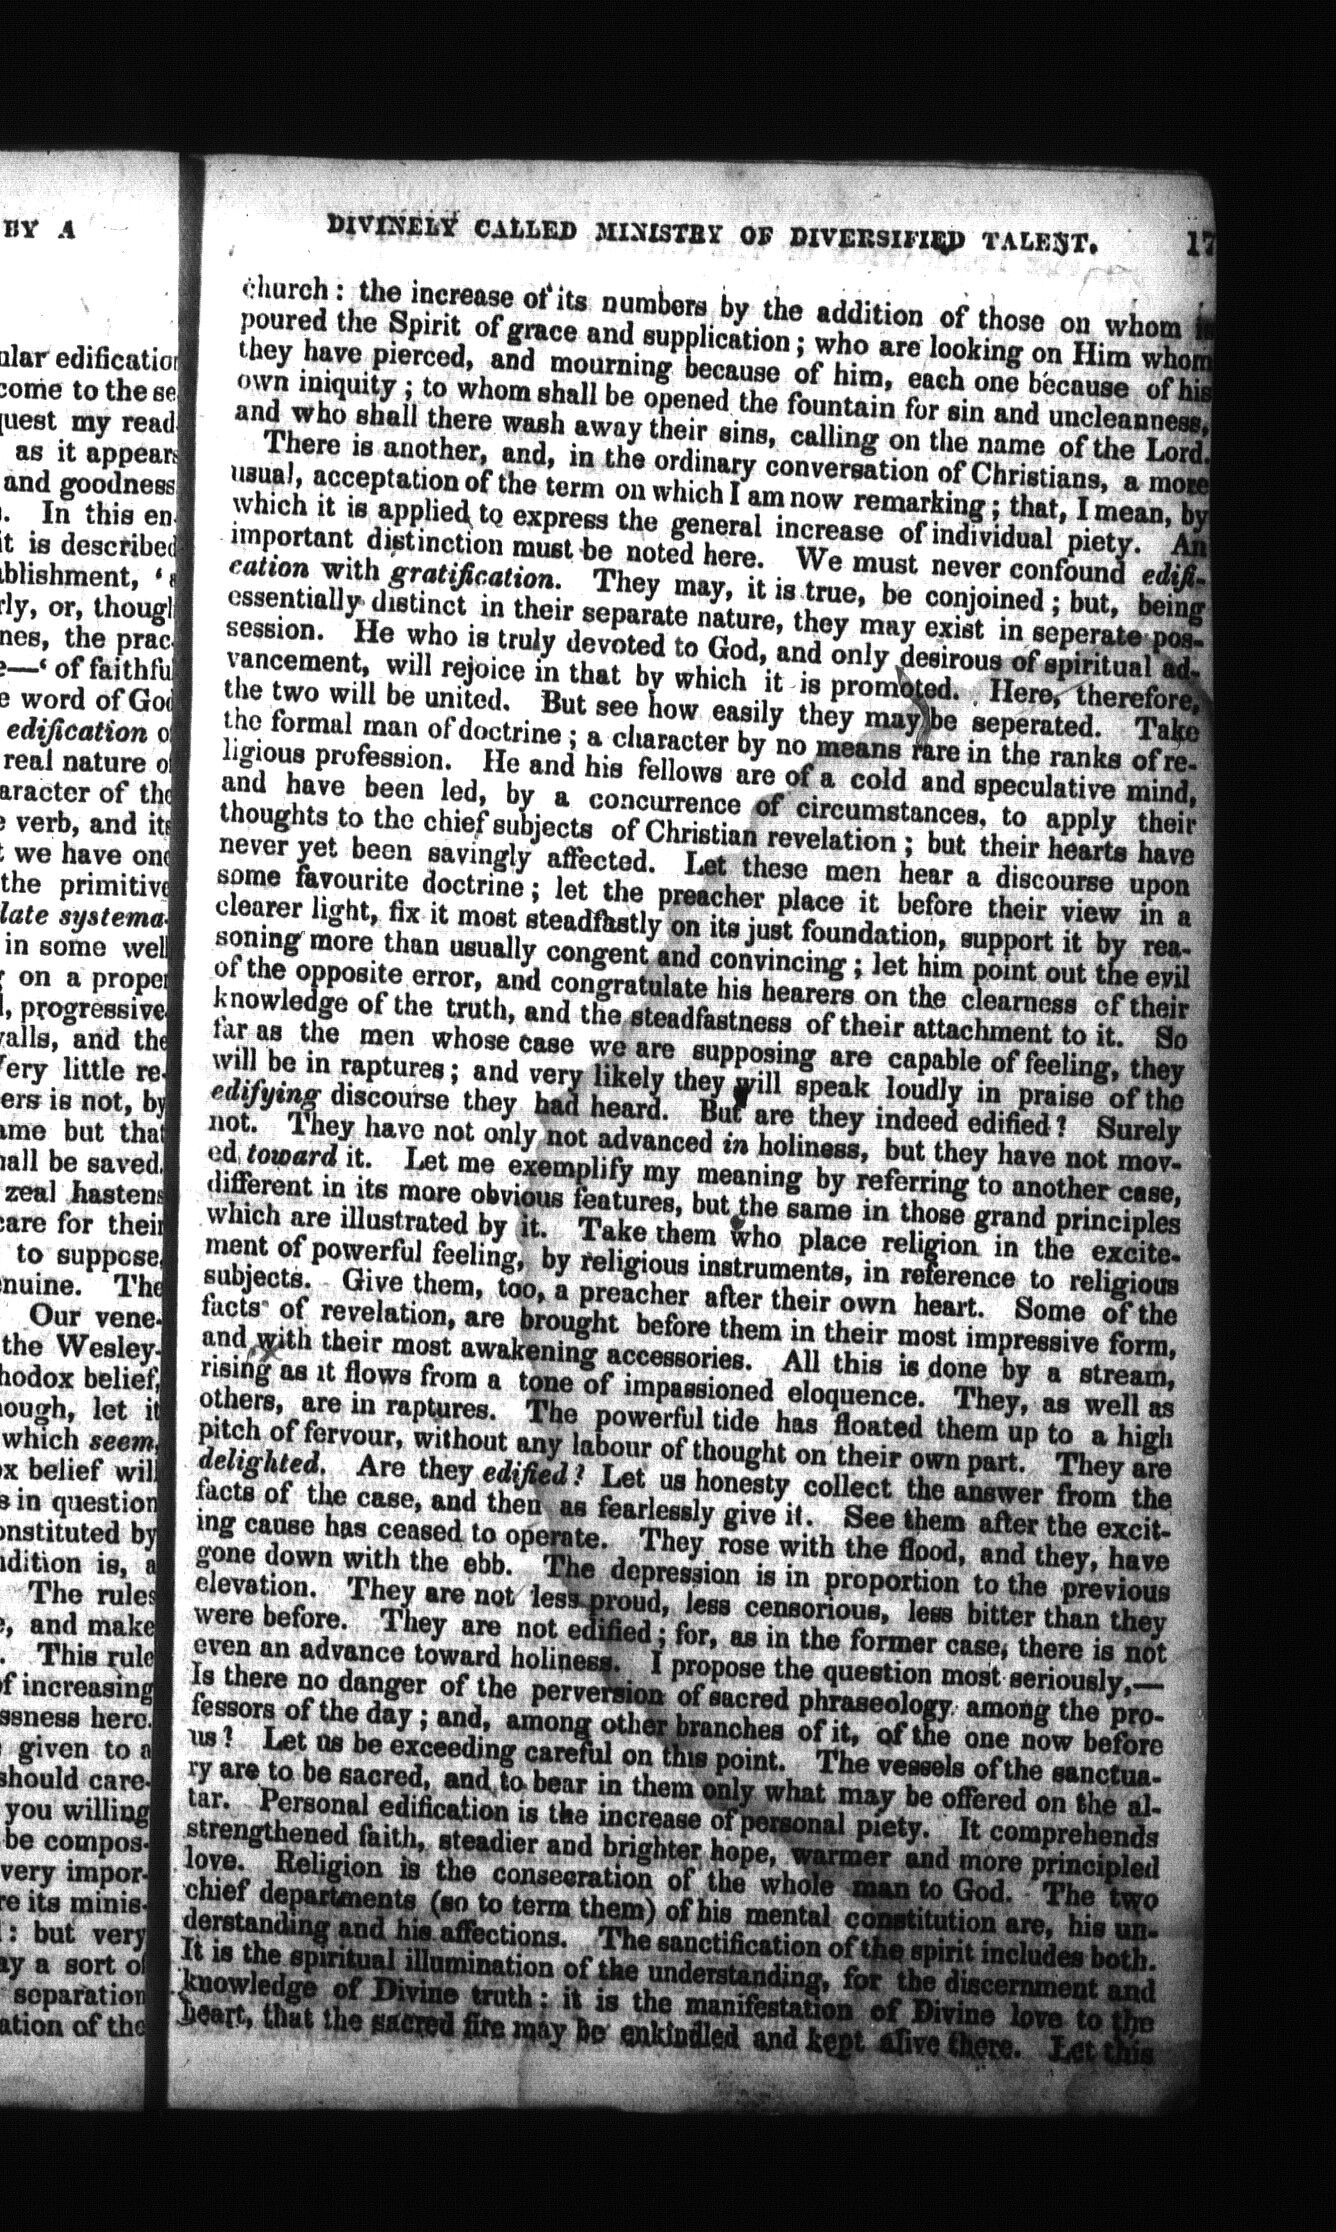 BY A
ular edification
come to the se
quest my read
as it appears
and goodness
. In this en-
it is described
ablishment, '
rly, or, though
nes, the prac-
e—' of faithful
e word of God
edification of
real nature of
aracter of the
e verb, and its
t we have one
the primitive
late systema-
in some well
on a proper
l, progressive
walls, and the
Very little re-
ers is not, by
ame but that
hall be saved.
zeal hastens
care for their
to suppose,
nuine. The
Our vene-
the Wesley-
hodox belief,
ough, let it
which seem,
ox belief will
s in question
onstituted by
dition is, a
The rules
e, and make
. This rule
of increasing
ssness here.
given to a
should care-
you willing
be compos-
very impor-
re its minis-
: but very
ay a sort of
separation
ation of the
DIVINELY CALLED MINISTRY OF DIVERSIFIED TALENT. 17
church: the increase of its numbers by the addition of those on whom is
poured the Spirit of grace and supplication; who are looking on Him whom
they have pierced, and mourning because of him, each one because of his
own iniquity; to whom shall be opened the fountain for sin and uncleanness,
and who shall there wash away their sins, calling on the name of the Lord.
There is another, and, in the ordinary conversation of Christians, a more
usual, acceptation of the term on which I am now remarking; that, I mean, by
which it is applied to express the general increase of individual piety. An
important distinction must be noted here. We must never confound edifi-
cation with gratification. They may, it is true, be conjoined; but, being
essentially distinct in their separate nature, they may exist in seperate pos-
session. He who is truly devoted to God, and only desirous of spiritual ad-
vancement, will rejoice in that by which it is promoted. Here, therefore,
the two will be united. But see how easily they may be seperated. Take
the formal man of doctrine; a character by no means rare in the ranks of re-
ligious profession. He and his fellows are of a cold and speculative mind,
and have been led, by a concurrence of circumstances, to apply their
thoughts to the chief subjects of Christian revelation; but their hearts have
never yet been savingly affected. Let these men hear a discourse upon
some favourite doctrine; let the preacher place it before their view in a
clearer light, fix it most steadfastly on its just foundation, support it by rea-
soning more than usually congent and convincing; let him point out the evil
of the opposite error, and congratulate his hearers on the clearness of their
knowledge of the truth, and the steadfastness of their attachment to it. So
far as the men whose case we are supposing are capable of feeling, they
will be in raptures; and very likely they will speak loudly in praise of the
edifying discourse they had heard. But are they indeed edified? Surely
not. They have not only not advanced in holiness, but they have not mov-
ed toward it. Let me exemplify my meaning by referring to another case,
different in its more obvious features, but the same in those grand principles
which are illustrated by it. Take them who place religion in the excite-
ment of powerful feeling, by religious instruments, in reference to religious
subjects. Give them, too, a preacher after their own heart. Some of the
facts of revelation, are brought before them in their most impressive form,
and with their most awakening accessories. All this is done by a stream,
rising as it flows from a tone of impassioned eloquence. They, as well as
others, are in raptures. The powerful tide has floated them up to a high
pitch of fervour, without any labour of thought on their own part. They are
delighted. Are they edified? Let us honesty collect the answer from the
facts of the case, and then as fearlessly give it. See them after the excit-
ing cause has ceased to operate. They rose with the flood, and they, have
gone down with the ebb. The depression is in proportion to the previous
elevation. They are not less proud, less censorious, less bitter than they
were before. They are not edified; for, as in the former case, there is not
even an advance toward holiness. I propose the question most seriously,—
Is there no danger of the perversion of sacred phraseology among the pro-
fessors of the day; and, among other branches of it, of the one now before
us? Let us be exceeding careful on this point. The vessels of the sanctua-
ry are to be sacred, and to bear in them only what may be offered on the al-
tar. Personal edification is the increase of personal piety. It comprehends
strengthened faith, steadier and brighter hope, warmer and more principled
love. Religion is the consecration of the whole man to God. The two
chief departments (so to term them) of his mental constitution are, his un-
derstanding and his affections. The sanctification of the spirit includes both.
It is the spiritual illumination of the understanding, for the discernment and
knowledge of Divine truth: it is the manifestation of Divine love to the
heart, that the sacred fire may be enkindled and kept alive there. Let this